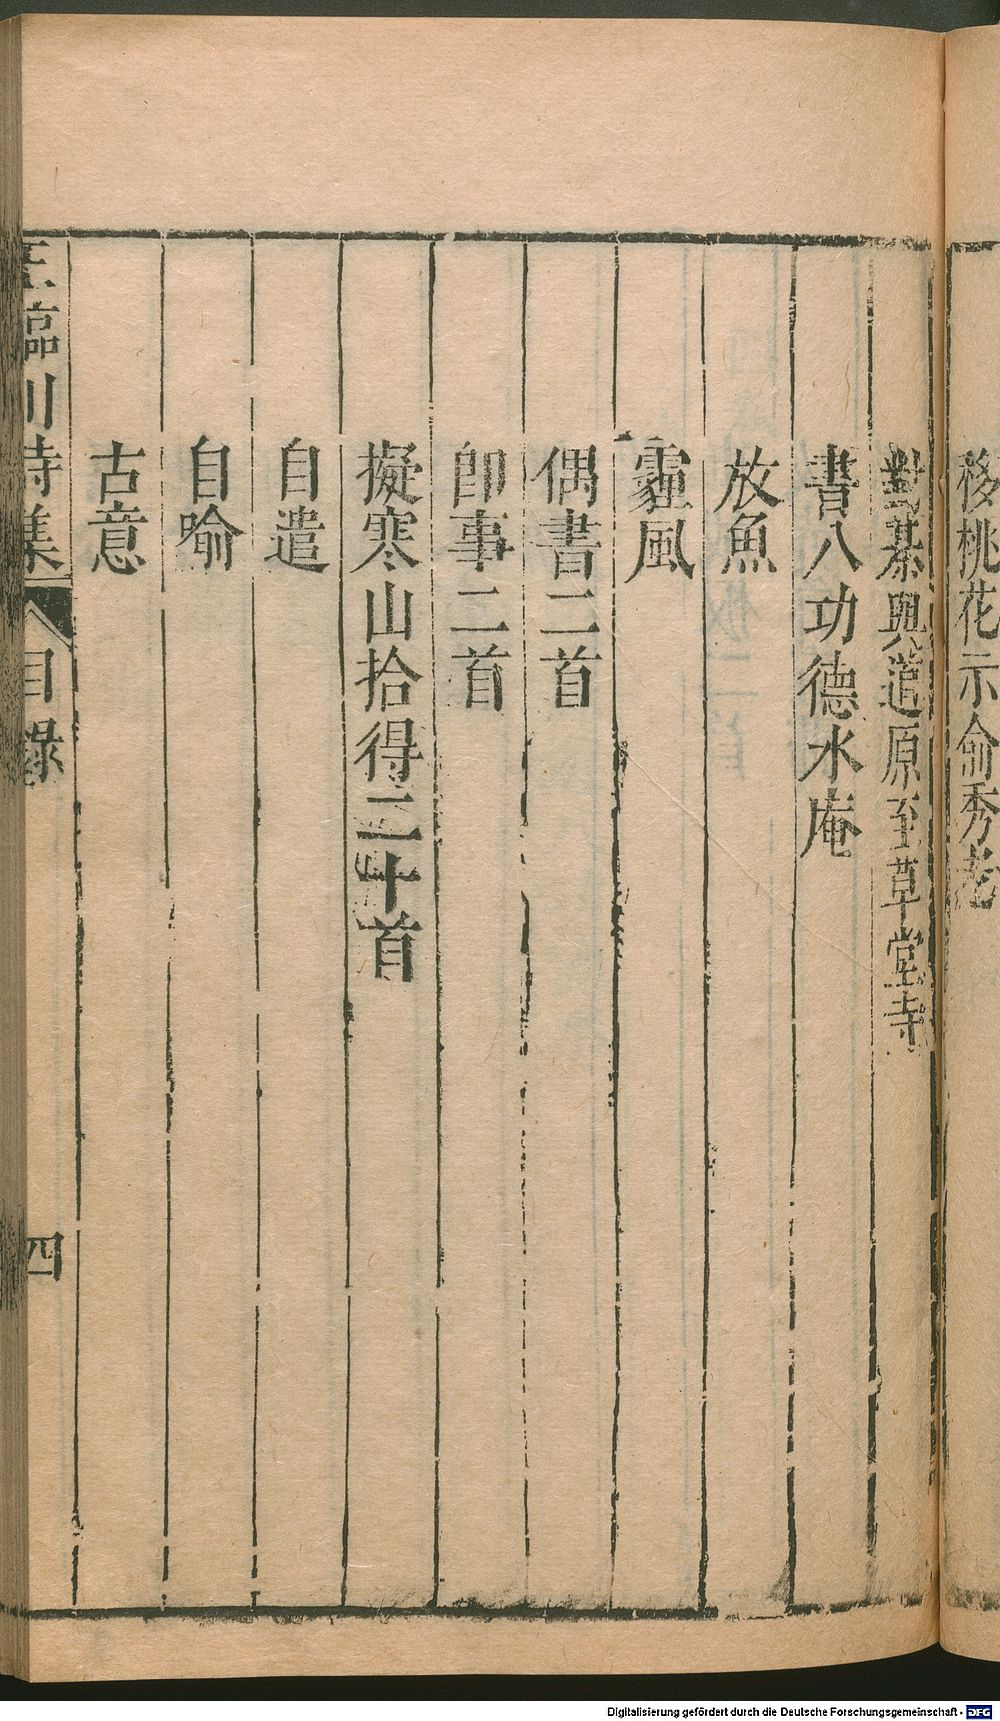 移桃花示俞秀老
對棊與道原至草堂寺
書八功德水庵
放魚
霾風
偶書二首
即事二首
擬寒山拾得二十首
自遣
自喻
古意
王臨川詩集
目錄
四
Digitalisierung gefördert durch die Deutsche Forschungsgemeinschaft - DFG